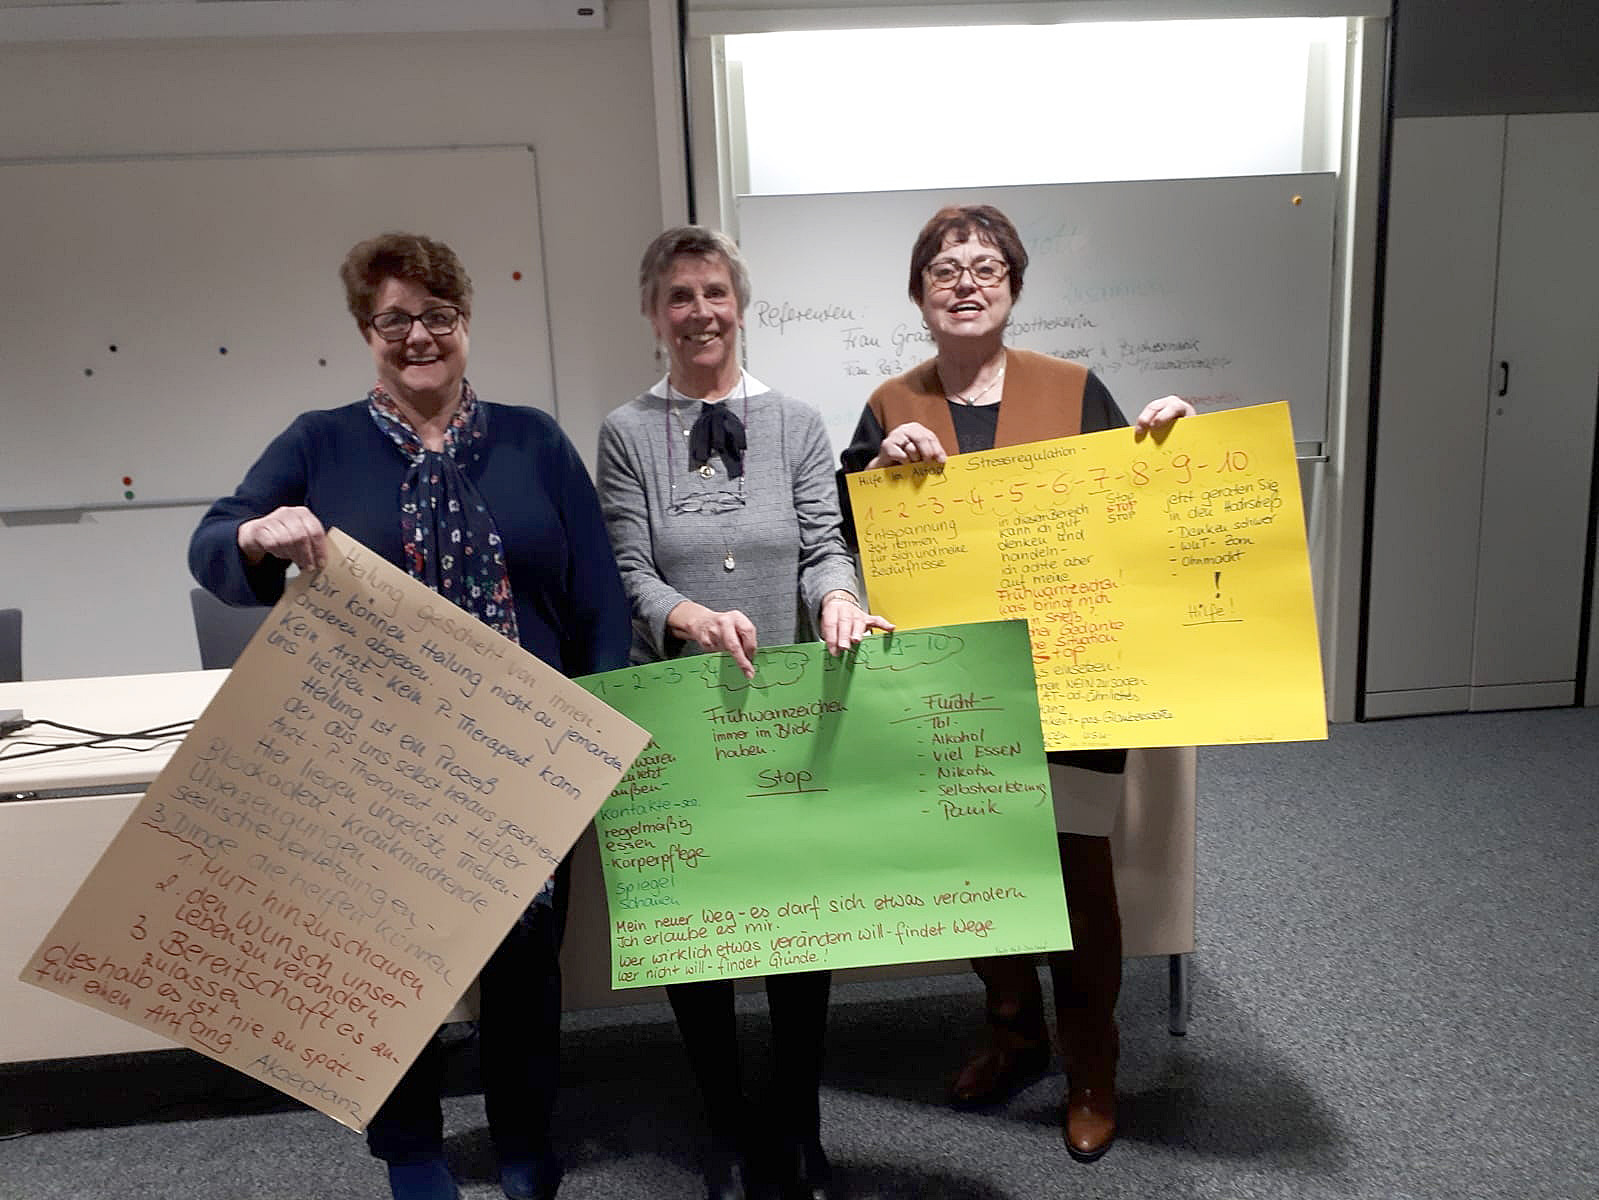 Gott
Referenten:
Frau Apothekerin
Frau
Heilung geschieht von innen.
Wir können Heilung nicht an jemanden
anderen abgeben.
Kein Arzt - Kein P-Therapeut kann
uns helfen -
Heilung ist ein Prozeß
der aus uns selbst heraus geschieht
Arzt - P-Therapeut ist Helfer
Hier liegen ungelöste Themen -
Blockaden - Krankmachende
Überzeugungen -
seelische Verletzungen -
3 Dinge die helfen können
1. MUT hinzuschauen
2. den Wunsch unser
Leben zu verändern
3 Bereitschaft es zu-
zulassen
deshalb es ist nie zu spät -
für einen Anfang.
Akzeptanz
1 - 2 - 3 - 4 - 5 - 6 - 8 - 9 - 10
Frühwarnzeichen
immer im Blick
haben.
Stop
außen-
Kontakte -
regelmäßig
essen
-Körperpflege
Spiegel
schauen
- Flucht -
- Tbl.
- Alkohol
- viel ESSEN
- Nikotin
- Selbstverletzung
- Panik
Mein neuer Weg - es darf sich etwas verändern
Ich erlaube es mir.
Wer wirklich etwas verändern will - findet Wege
wer nicht will - findet Gründe!
Hilfe im Alltag - Stressregulation -
1 - 2 - 3 - 4 - 5 - 6 - 7 - 8 - 9 - 10
Entspannung
Zeit nehmen
für sich und meine
Bedürfnisse
in diesem Bereich
kann ich gut
denken und
handeln -
ich achte aber
auf meine
Frühwarnzeichen!
was bringt mich
in Streß?
Gedanke
Situation
STOP
einsetzen!
NEIN zu sagen
Stop
STOP
STOP
jetzt geraten Sie
in den
- Denken schwer
- WUT - Zorn
- Ohnmacht
-
!
Hilfe!